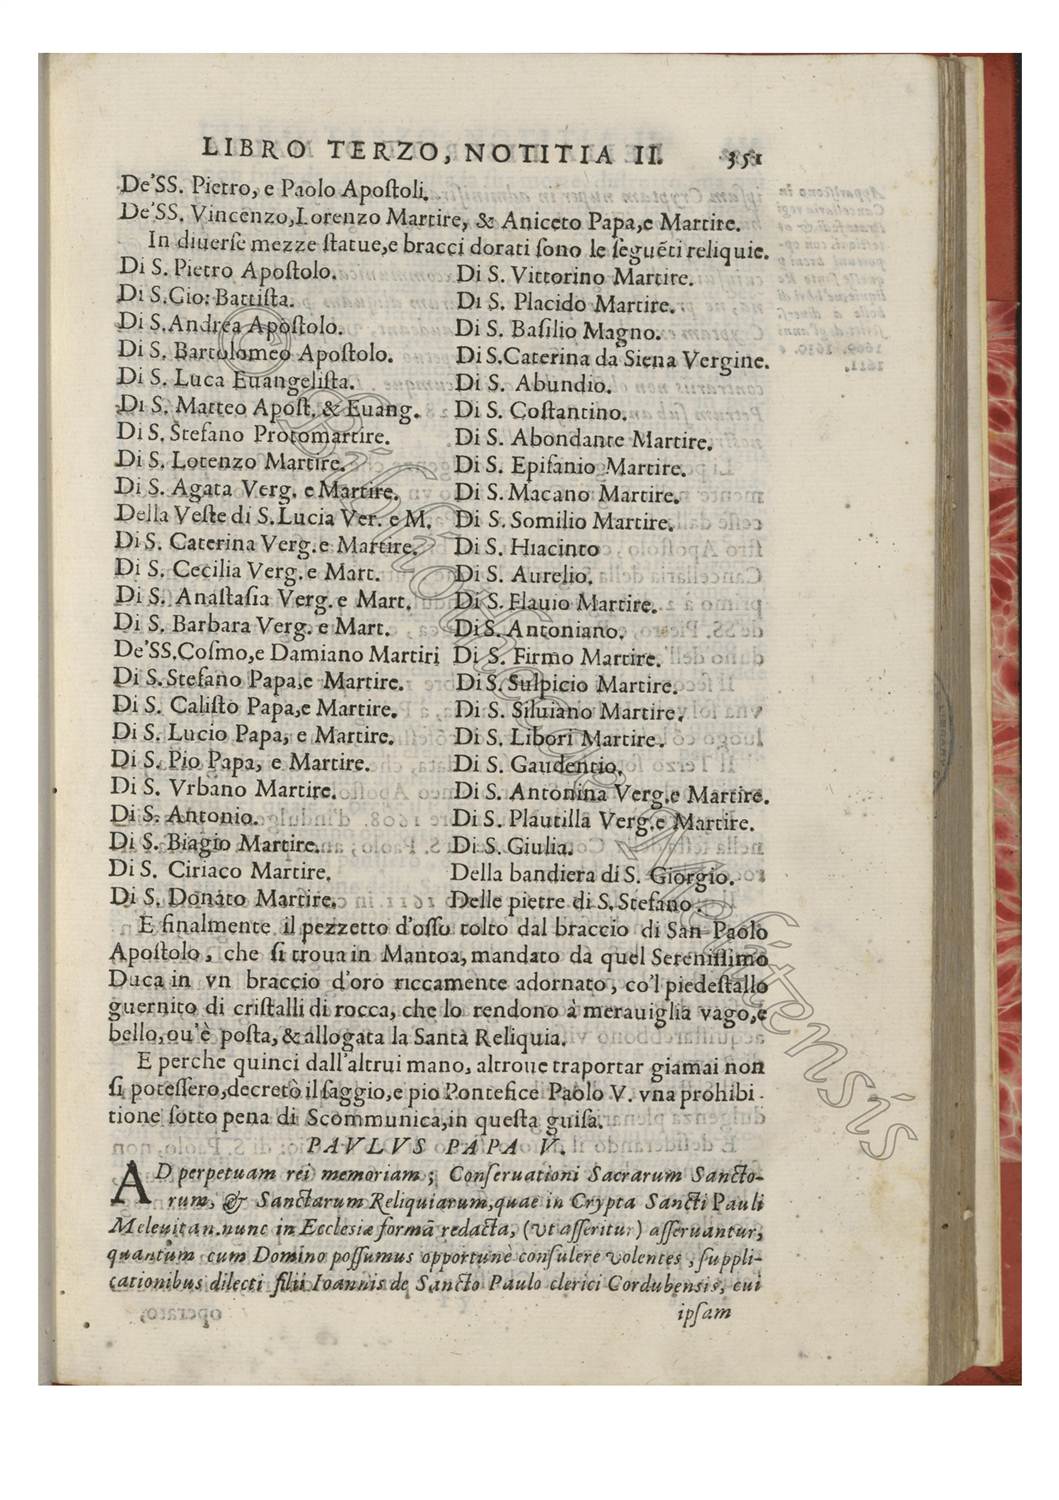 LIBRO TERZO, NOTITIA II. 351
De'SS. Pietro, e Paolo Apoſtoli.
De'SS. Vincenzo,Lorenzo Martire, & Aniceto Papa,e Martire.
In diuerſe mezze ſtatue,e bracci dorati ſono le ſeguẽti reliquie.
Di S. Pietro Apoſtolo.
Di S.Gio: Battiſta.
Di S.Andrea Apoſtolo.
Di S. Bartolomeo Apoſtolo.
Di S. Luca Euangeliſta.
Di S. Matteo Apoſt. & Euang.
Di S. Stefano Protomartire.
Di S. Lorenzo Martire.
Di S. Agata Verg. e Martire.
Della Veſte di S.Lucia Ver. e M.
Di S. Caterina Verg.e Martire.
Di S. Cecilia Verg.e Mart.
Di S. Anaſtaſia Verg.e Mart.
Di S. Barbara Verg. e Mart.
De'SS.Coſmo,e Damiano Martiri
Di S.Stefano Papa,e Martire.
Di S. Caliſto Papa,e Martire.
Di S. Lucio Papa, e Martire.
Di S. Pio Papa, e Martire.
Di S. Vrbano Martire.
Di S. Antonio.
Di S. Biagio Martire.
Di S. Ciriaco Martire.
Di S. Donato Martire.
Di S. Vittorino Martire.
Di S. Placido Martire.
Di S. Baſilio Magno.
Di S.Caterina da Siena Vergine.
Di S. Abundio.
Di S. Coſtantino.
Di S. Abondante Martire.
Di S. Epifanio Martire.
Di S. Macano Martire.
Di S. Somilio Martire.
Di S. Hiacinto
Di S. Aurelio.
Di S. Flauio Martire.
Di S. Antoniano.
Di S. Firmo Martire.
Di S. Sulpicio Martire.
Di S. Siluiano Martire.
Di S. Libori Martire.
Di S. Gaudentio.
Di S. Antonina Verg.e Martire.
Di S. Plautilla Verg.e Martire.
Di S. Giulia.
Della bandiera di S. Giorgio.
Delle pietre di S. Stefano.
E finalmente il pezzetto d'oſſo tolto dal braccio di San Paolo
Apoſtolo, che ſi troua in Mantoa, mandato da quel Sereniſſimo
Duca in vn braccio d'oro riccamente adornato, co'l piedeſtallo
guernito di criſtalli di rocca, che lo rendono à merauiglia vago,e
bello,ou'è poſta, & allogata la Santa Reliquia.
E perche quinci dall'altrui mano, altroue traportar giamai non
ſi poteſſero,decretò il ſaggio,e pio Pontefice Paolo V. vna prohibi-
tione ſotto pena di Scommunica,in queſta guiſa.
PAVLVS PAPA V.
AD perpetuam rei memoriam; Conſeruationi Sacrarum Sancto-
rum, & Sanctarum Reliquiarum,quae in Crypta Sancti Pauli
Meleuitan.nunc in Eccleſiæ formã redacta, (vt aſſeritur) aſſeruantur,
quantum cum Domino poſſumus opportunè conſulere volentes, ſuppli-
cationibus dilecti filii Ioannis de Sancto Paulo clerici Cordubenſis, cui
ipſam
© Bibliotheca Melitensis